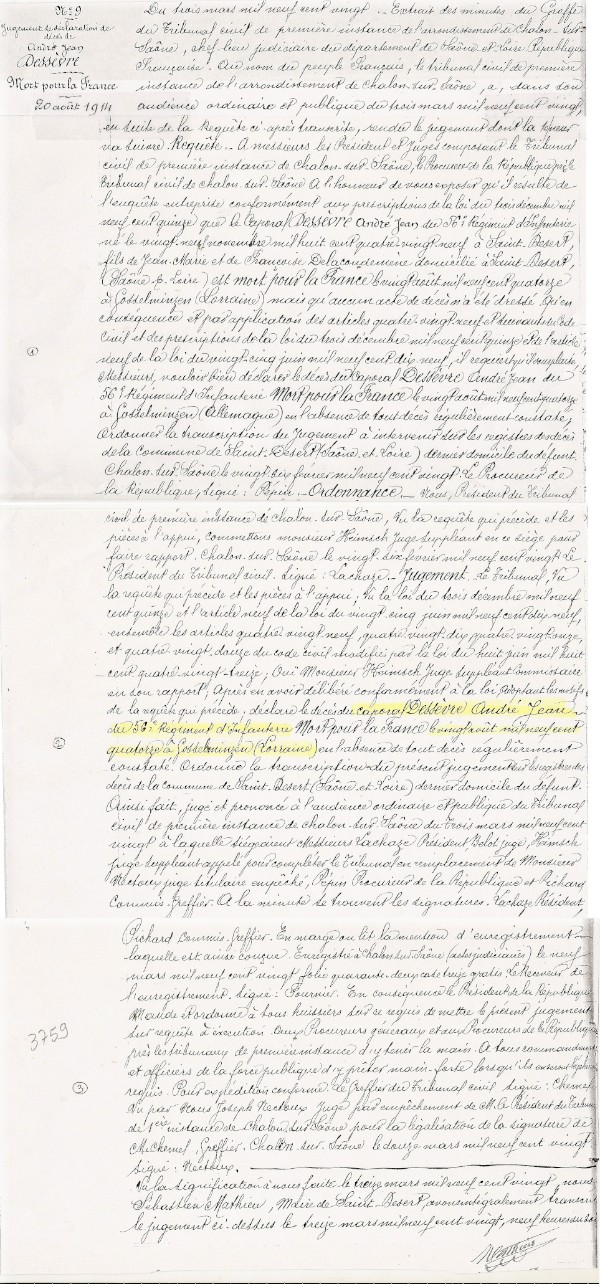 N° 9
Jugement déclaration de
décès
André Jean
Dessèvre
Mort pour la France
20 août 1914
Du trois mars mil neuf cent vingt. - Extrait des minutes du Greffe
du Tribunal civil de première instance de l'arrondissement de Chalon-sur-
Saône, chef-lieu judiciaire du département de Saône et Loire République
Française. Au nom du peuple Français, le tribunal civil de première
instance de l'arrondissement de Chalon-sur-Saône, a, dans son
audience ordinaire et publique du trois mars mil neuf cent vingt,
en suite de la Requête ci-après transcrite, rendu le jugement dont la teneur
va suivre Requête. - A messieurs les Président et Juges composant le Tribunal
civil de première instance de Chalon-sur-Saône, le Procureur de la République près le
Tribunal civil de Chalon-sur-Saône A l'honneur de vous exposer qu'il résulte de
l'enquête entreprise conformément aux prescriptions de la loi du trois décembre mil
neuf cent quinze que le Caporal Dessèvre André Jean du 56e Régiment d'Infanterie
né le vingt-neuf novembre mil huit cent quatre vingt neuf à Saint-Desert,
fils de Jean-Marie et de Francoise Delacondemène domicilié à Saint-Desert,
(Saône & Loire) est mort pour la France le vingt août mil neuf cent quatorze
à Gosselminzen (Lorraine) mais qu'aucun acte de décès n'a été dressé. Qu'en
conséquence et par application des articles quatre-vingt-neuf et suivants du Code
civil et des prescriptions de la loi du trois décembre mil neuf cent quinze et de l'article
neuf de la loi du vingt cinq juin mil neuf cent dix neuf, il requiert qu'il vous plaise
Messieurs, vouloir bien déclarer le décès du Caporal Dessèvre André Jean du
56e Régiment d'Infanterie Mort pour la France le vingt août mil neuf cent quatorze
à Gosselminzen (Allemagne) en l'absence de tout décès régulièrement constaté;
Ordonner la transcription du Jugement à intervenir sur les registres des décès
de la Commune de Saint-Desert (Saône et Loire) dernier domicile du defunt.
Chalon-sur-Saône le vingt six février mil neuf cent vingt. Le Procureur de
la République, signé: Pépin - Ordonnance. - Nous, Président du Tribunal
1
civil de première instance de Chalon-sur-Saône, Vu la requête qui précède et les
pièces à l'appui, commettons monsieur Heimsch Juge suppléant en ce siège pour
faire rapport. Chalon-sur-Saône le vingt-six février mil neuf cent vingt. Le
Président du Tribunal civil. Signé: Lachaze. - Jugement. Le Tribunal, Vu
la requête qui précède et les pièces à l'appui; Vu la loi du trois décembre mil neuf
cent quinze et l'article neuf de la loi du vingt cinq juin mil neuf cent dix neuf,
ensemble les articles quatre vingt neuf, quatre vingt-dix quatre vingt onze,
et quatre vingt douze du code civil modifiés par la loi du huit juin mil huit
cent quatre-vingt-treize; Ouï Monsieur Heimsch Juge suppléant commissaire
en son rapport; Après en avoir délibéré conformément à la loi Adoptant les motifs
de la requête qui précède, déclare le décès du caporal Dessèvre André Jean
du 56e Régiment d'Infanterie Mort pour la France le vingt août mil neuf cent
quatorze à Gosselminzen (Lorraine) en l'absence de tout décès régulièrement
constaté. Ordonne la transcription du présent jugement sur les registres des
décès de la commune de Saint-Desert (Saône et Loire) dernier domicile du defunt.
Ainsi fait, jugé et prononcé à l'audience ordinaire et publique du Tribunal
civil de première instance de Chalon-sur-Saône du Trois mars mil neuf cent
vingt à laquelle siégeaient Messieurs Lachaze Président, Belot Juge, Heimsch
juge suppléant appelé pour compléter le Tribunal en remplacement de Monsieur
Nectoux juge titulaire empêché, Pépin Procureur de la République et Pichard
Commis-Greffier. A la minute se trouvent les signatures. Lachaze Président,
2
Pichard Commis-Greffier. En marge on lit la mention d'enregistrement
laquelle est ainsi conçue. Enregistré à Chalon-sur-Saône (actes judiciaires) le neuf
mars mil neuf cent vingt folio quarante-deux case treize gratis. Le Receveur de
l'enregistrement. Signé: Fournier. En conséquence le Président de la République
Mande et ordonne à tous huissiers sur ce requis de mettre le présent jugement
sur requête à exécution. Aux Procureurs généraux et aux Procureurs de la République
près les tribunaux de première instance d'y tenir la main. A tous commandants
et officiers de la force publique d'y prêter main-forte lorsqu'ils en seront légalement
requis. Pour expédition conforme. Le Greffier du Tribunal civil signé: Chernel
Vu par Nous Joseph Nectoux Juge par empêchement de M. le Président du Tribunal
de 1ère instance de Chalon-sur-Saône pour la légalisation de la signature de
M. Chernel, Greffier. Chalon-sur-Saône le douze mars mil neuf cent vingt
signé: Nectoux.
Vu la signification à nous faite le treize mars mil neuf cent vingt, nous
Sébastien Mathieu, Maire de Saint-Desert avons intégralement transcrit
le jugement ci-dessus le treize mars mil neuf cent vingt, neuf heures du soir
3759
3